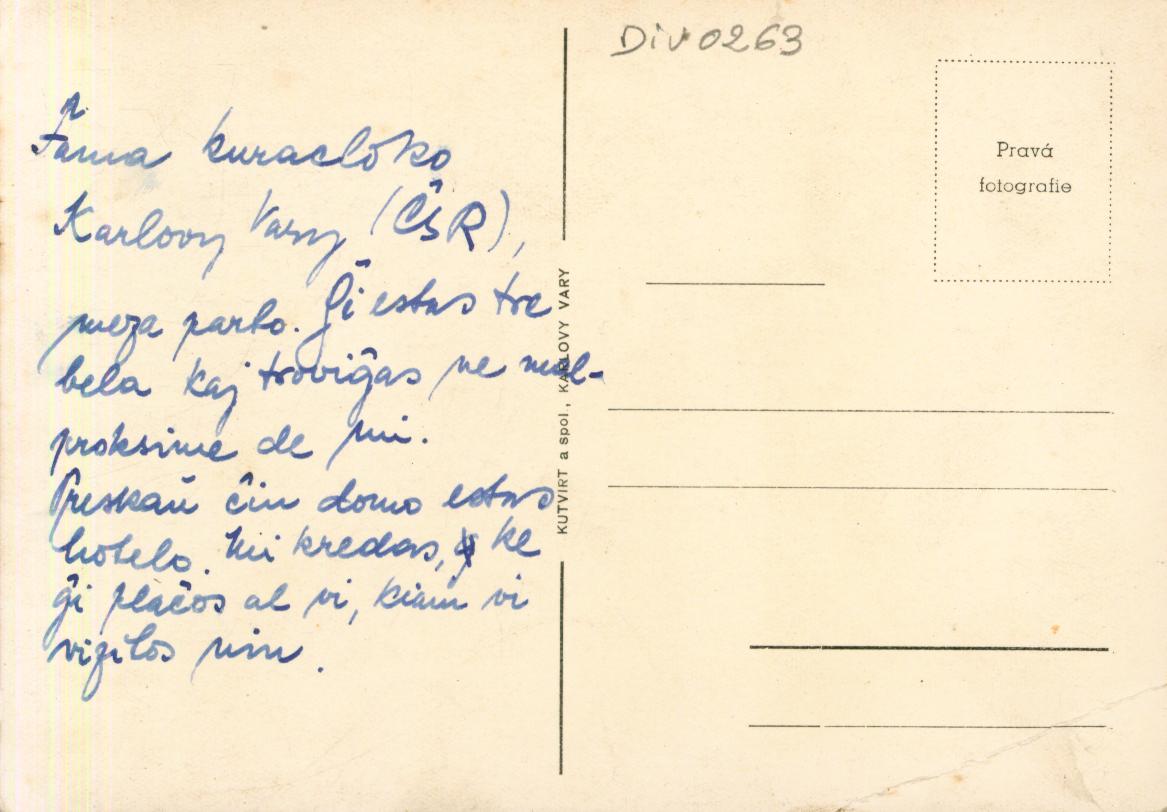 Div 0263
Fama kuracloko
Karlovy Vary (ČSR),
meza parto. Ĝi estas tre
bela kaj troviĝas ne mal-
proksime de mi.
Preskaŭ ĉiu domo estas
hotelo. Mi kredas, ke
ĝi plaĉos al vi, kiam vi
vizitos min.
KUTVIRT a spol., KARLOVY VARY
Pravá
fotografie